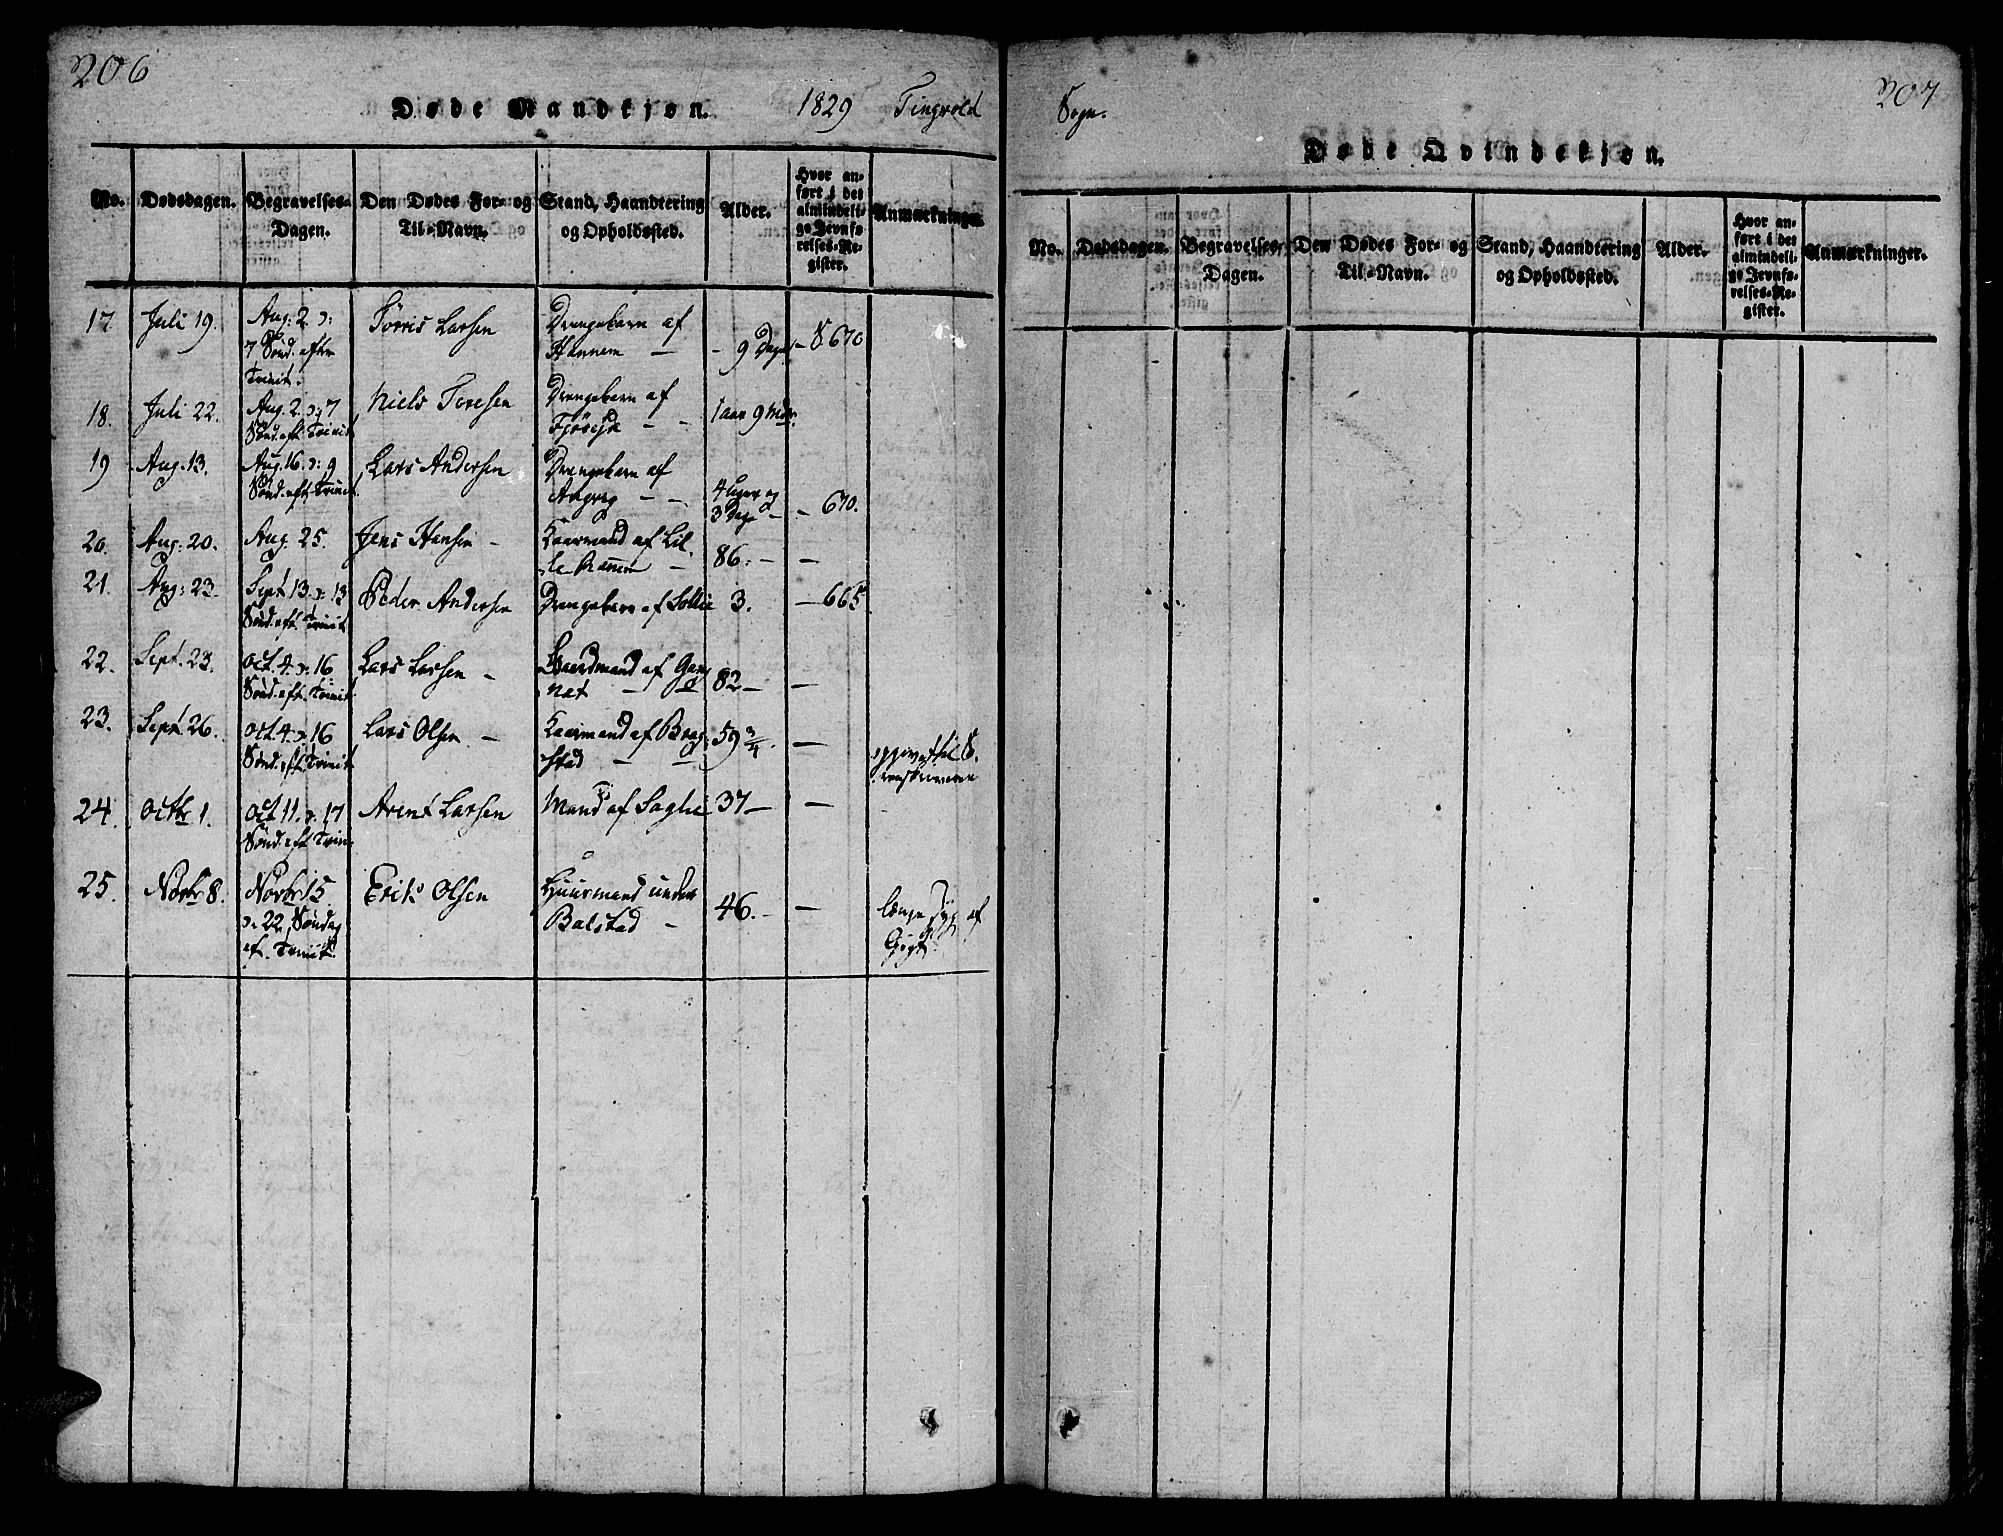 206
Døde Mandkjøn. 1829 Tingvold
No. Dødsdagen. Begravelses-Dagen. Den Dødes For- og Til-Navn. Stand, Haandtering og Opholdssted. Alder. Hvor anført i det almindelige Jevnførelses-Register. Anmærkninger.
17. Juli 19. Aug: 2. ɔ: 7 Sønd. efter Trinit. Törris Larsen Drengebarn af Hannem — - 9 Dage — S 670
18. Juli 22. Aug. 2. ɔ: 7 Sønd. eft. Trinit. Niels Toresen Drengebarn af - - 1 aar 9 Mdr.
19 Aug. 13. Aug. 16. ɔ: 9 Sønd. eft. Trinit. Lars Andersen Drengebarn af Angvig - - 4 Uger og 3 Dage - - 670.
20. Aug: 20. Aug. 25. Jens Hansen - Kaarmand af Lille - 86. - —
21. Aug: 23. Sept 13. ɔ: 13 Sønd. eft. Trinit. Peder Andersen Drengebarn af Sollie 3. — 665
22. Sept. 23. Oct. 4. ɔ. 16 Sønd. eft. Trinit. Lars Larsen - Gaardmand af - 82 — —
23. Sept. 26. Oct 4. ɔ. 16 Sønd. eft. Trinit. Lars Olsen - Kaarmand af Boagstad - - 59 3/4. —
24. Octbr 1. Oct 11. ɔ. 17 Sønd. eft Trin. Arent Larsen Mand af Saglie 37 — —
25. Novbr 8. Novbr 15. ɔ. 22, Søndag eft. Trinit. Erik Olsen Huusmand under Balstad - 46. - — længe syg af Gigt
Sogn. 207
Døde Qvindekjøn.
No. Dødsdagen. Begravelses-Dagen. Den Dødes For- og Til-Navn. Stand, Haandtering og Opholdssted. Alder. Hvor anført i det almindelige Jevnførelses-Register. Anmærkninger.